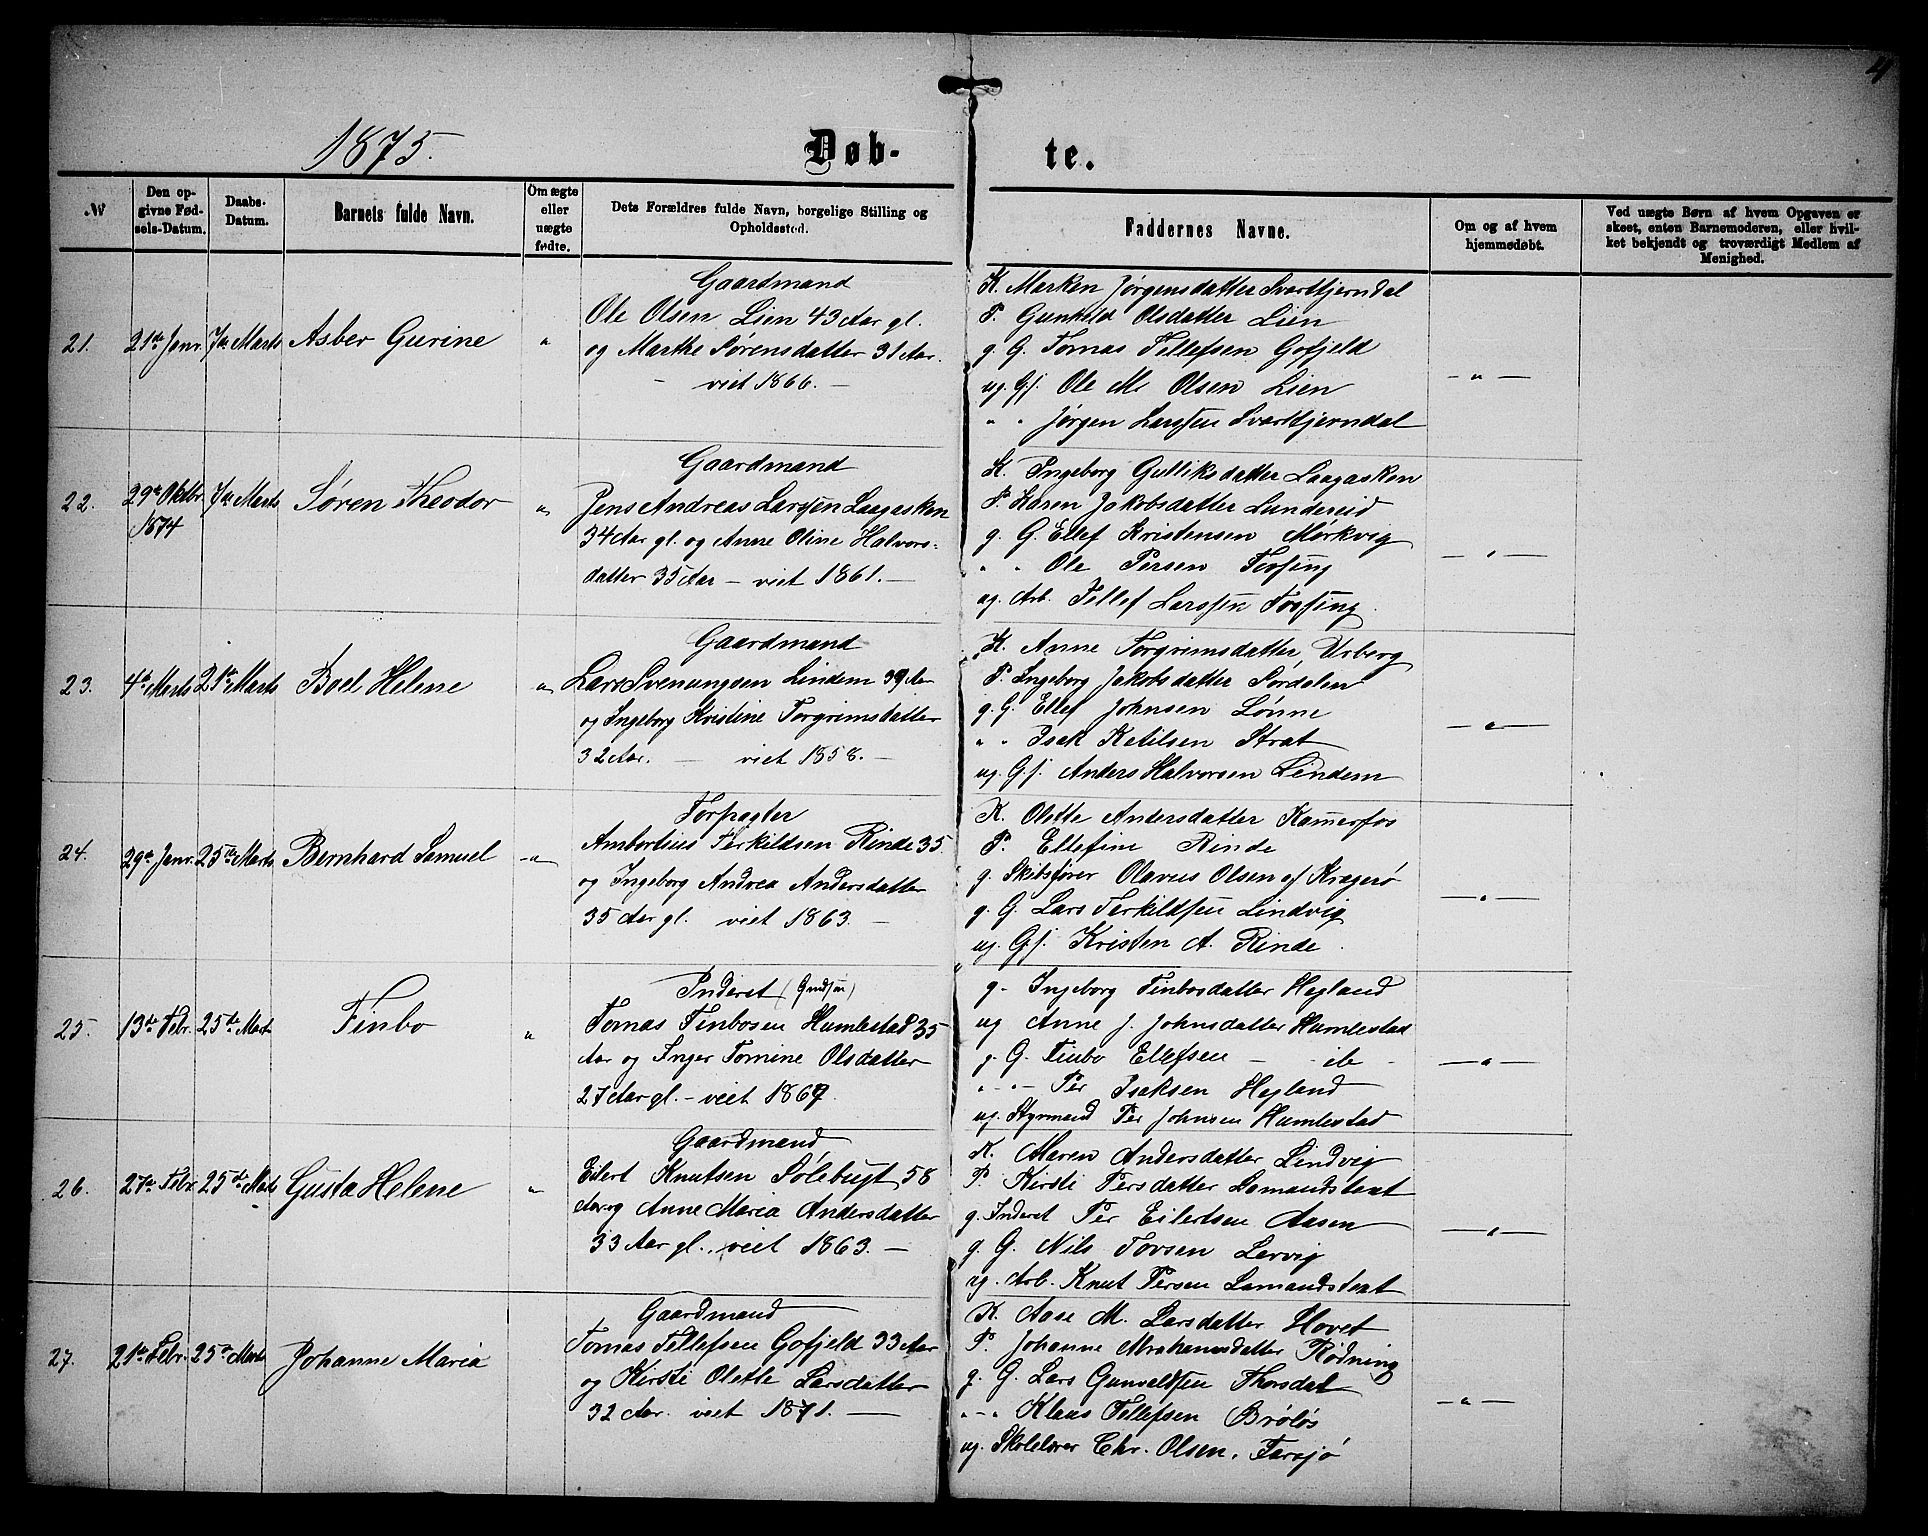 4
1875.
Døb- te.
№
Den op-
givne Fød-
sels-Datum.
Daabs-
Datum.
Barnets fulde Navn.
Om ægte
eller
uægte
fødte.
Dets Forældres fulde Navn, borgelige Stilling og
Opholdssted.
Faddernes Navne.
Om og af hvem
hjemmedøbt.
Ved uægte Børn af hvem Opgaven er
skeet, enten Barnemoderen, eller hvil-
ket bekjendt og troværdigt Medlem af
Menighed.
21. 21de Janr. 7de Marts Asber Gurine "
Gaardmand
Ole Olsen Lien 43 Aar gl.
og Marthe Sørensdatter 31 Aar.
– viet 1866. –
K. Marken Jørgensdatter Svarttjerndal
P. Gunhild Olsdatter Lien
g. G. Tomas Tellefsen Gofjeld
ug. Gf. Ole M. Olsen Lien
" " Jørgen Larssen Svarttjerndal
– " –
22. 29de Oktbr. 1874 7de Marts Søren Theodor "
Gaardmand
Jens Andreas Larssen Laagasken
34 Aar gl. og Anne Oline Halvors-
datter 35 Aar – viet 1861. –
K. Ingeborg Gulliksdatter Laagasken
P. Karen Jakobsdatter Lundereid
g. G. Ellef Kristensen Mørkvig
" " Ole Persen Fossing
ug. Arb. Tellef Larssen Fossing.
– " –
23. 4de Marts 21de Marts Boel Helene "
Gaardmand
Lars Svenungsen Lindem 39 Aar
og Ingeborg Kristine Torgrimsdatter
32 Aar. – viet 1858. –
K. Anne Torgrimsdatter Urberg
P. Ingeborg Jakobsdatter Sørdalen
g. G. Ellef Johnsen Lønne
" " Isak Ketilsen Strat
ug. Gf. Anders Halvorsen Lindem
– " –
24. 29de Janr. 25de Marts Bernhard Samuel "
Forpagter
Ambortius Terkildsen Rinde 35.
og Ingeborg Andrea Andersdatter
35 Aar gl. viet 1863. –
K. Olette Andersdatter Kamerfos
P. Ellefine Rinde
g. Skibsfører Olavus Olsen af Kragerø
g. G. Lars Terkildsen Lindvig
ug. Gf. Kristen A. Rinde.
– " –
25. 13de Febr. 25de Marts Finbo "
Inderst
Tomas Finbosen Humlestad 35
Aar og Inger Tomine Olsdatter
27 Aar gl. – viet 1867.
g. Ingeborg Finbosdatter Hegland
ug Anne J. Johnsdatter Humlestad
g. G. Finbo Ellefsen – ib –
" – " – Per Isaksen Hegland
ug. Styrmand Per Johnsen Humlestad
– " –
26. 27de Febr. 25de Marts Gusta Helene "
Gaardmand
Eilert Knutsen Sølebugt 58
Aar og Anne Maria Andersdatter
33 Aar gl. viet 1863. –
K. Maren Andersdatter Lindvig
P. Kirsti Persdatter Lomandstrat
g. Inderst Per Eilertsen Aasen
g. G. Nils Tovsen Lervig
ug. Arb. Knut Persen Lomandstrat
– " –
27. 21de Febr. 25de Marts Johanne Maria
Gaardmand
Tomas Tellefsen Gofjeld 33 Aar
og Kirsti Olette Larsdatter
32 Aar. viet 1871. –
K. Aase M. Larsdatter Hovet
P. Johanne Abrahamsdatter Rødning
g. G. Lars Gunvaldsen Thorsdal
" – " Klaus Tellefsen Brøløs
ug. Skolelærer Chr. Olsen, Farsjø
– " –